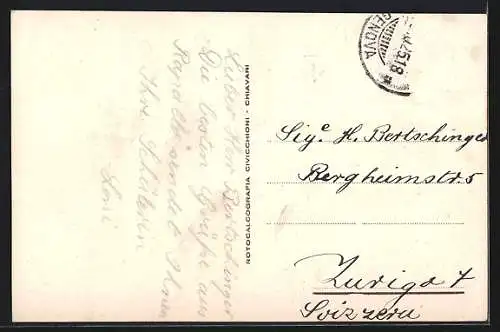 Lieber Herr Bertschinger
Die besten Grüße aus
Rapallo sendet Ihnen
Ihre Schülerin
Loni
ROTOCALCOGRAFIA CIVICCHIONI - CHIAVARI
GENOVA
Sigr. H. Bertschinger
Bergheimstr. 5
Zurigo 7
Svizzera